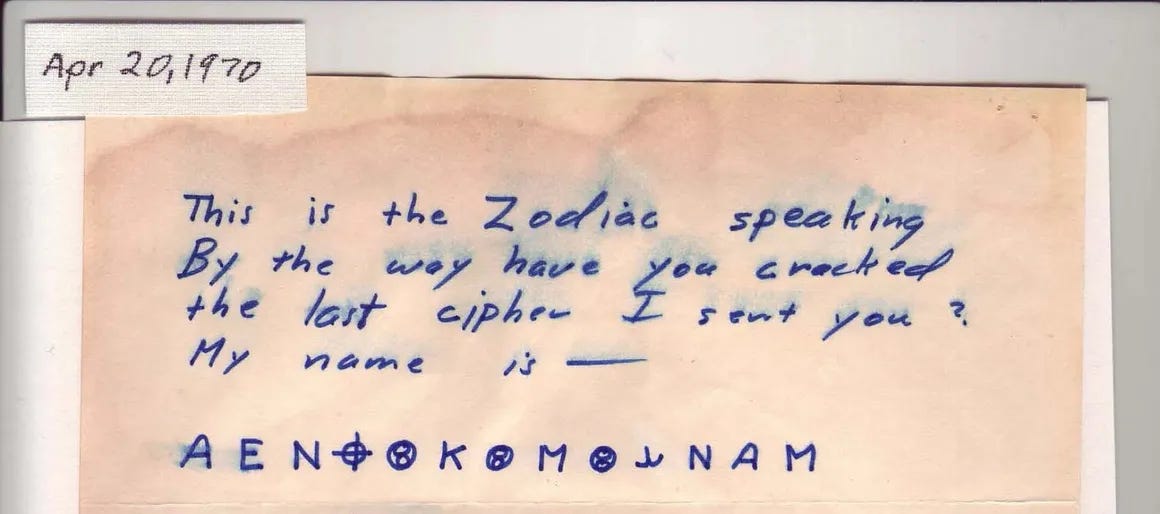 Apr 20,1970
This is the Zodiac speaking
By the way have you cracked
the last cipher I sent you?
My name is —
A E N ⌖ ⊗ K ⊗ M ⊗ ⅄ N A M